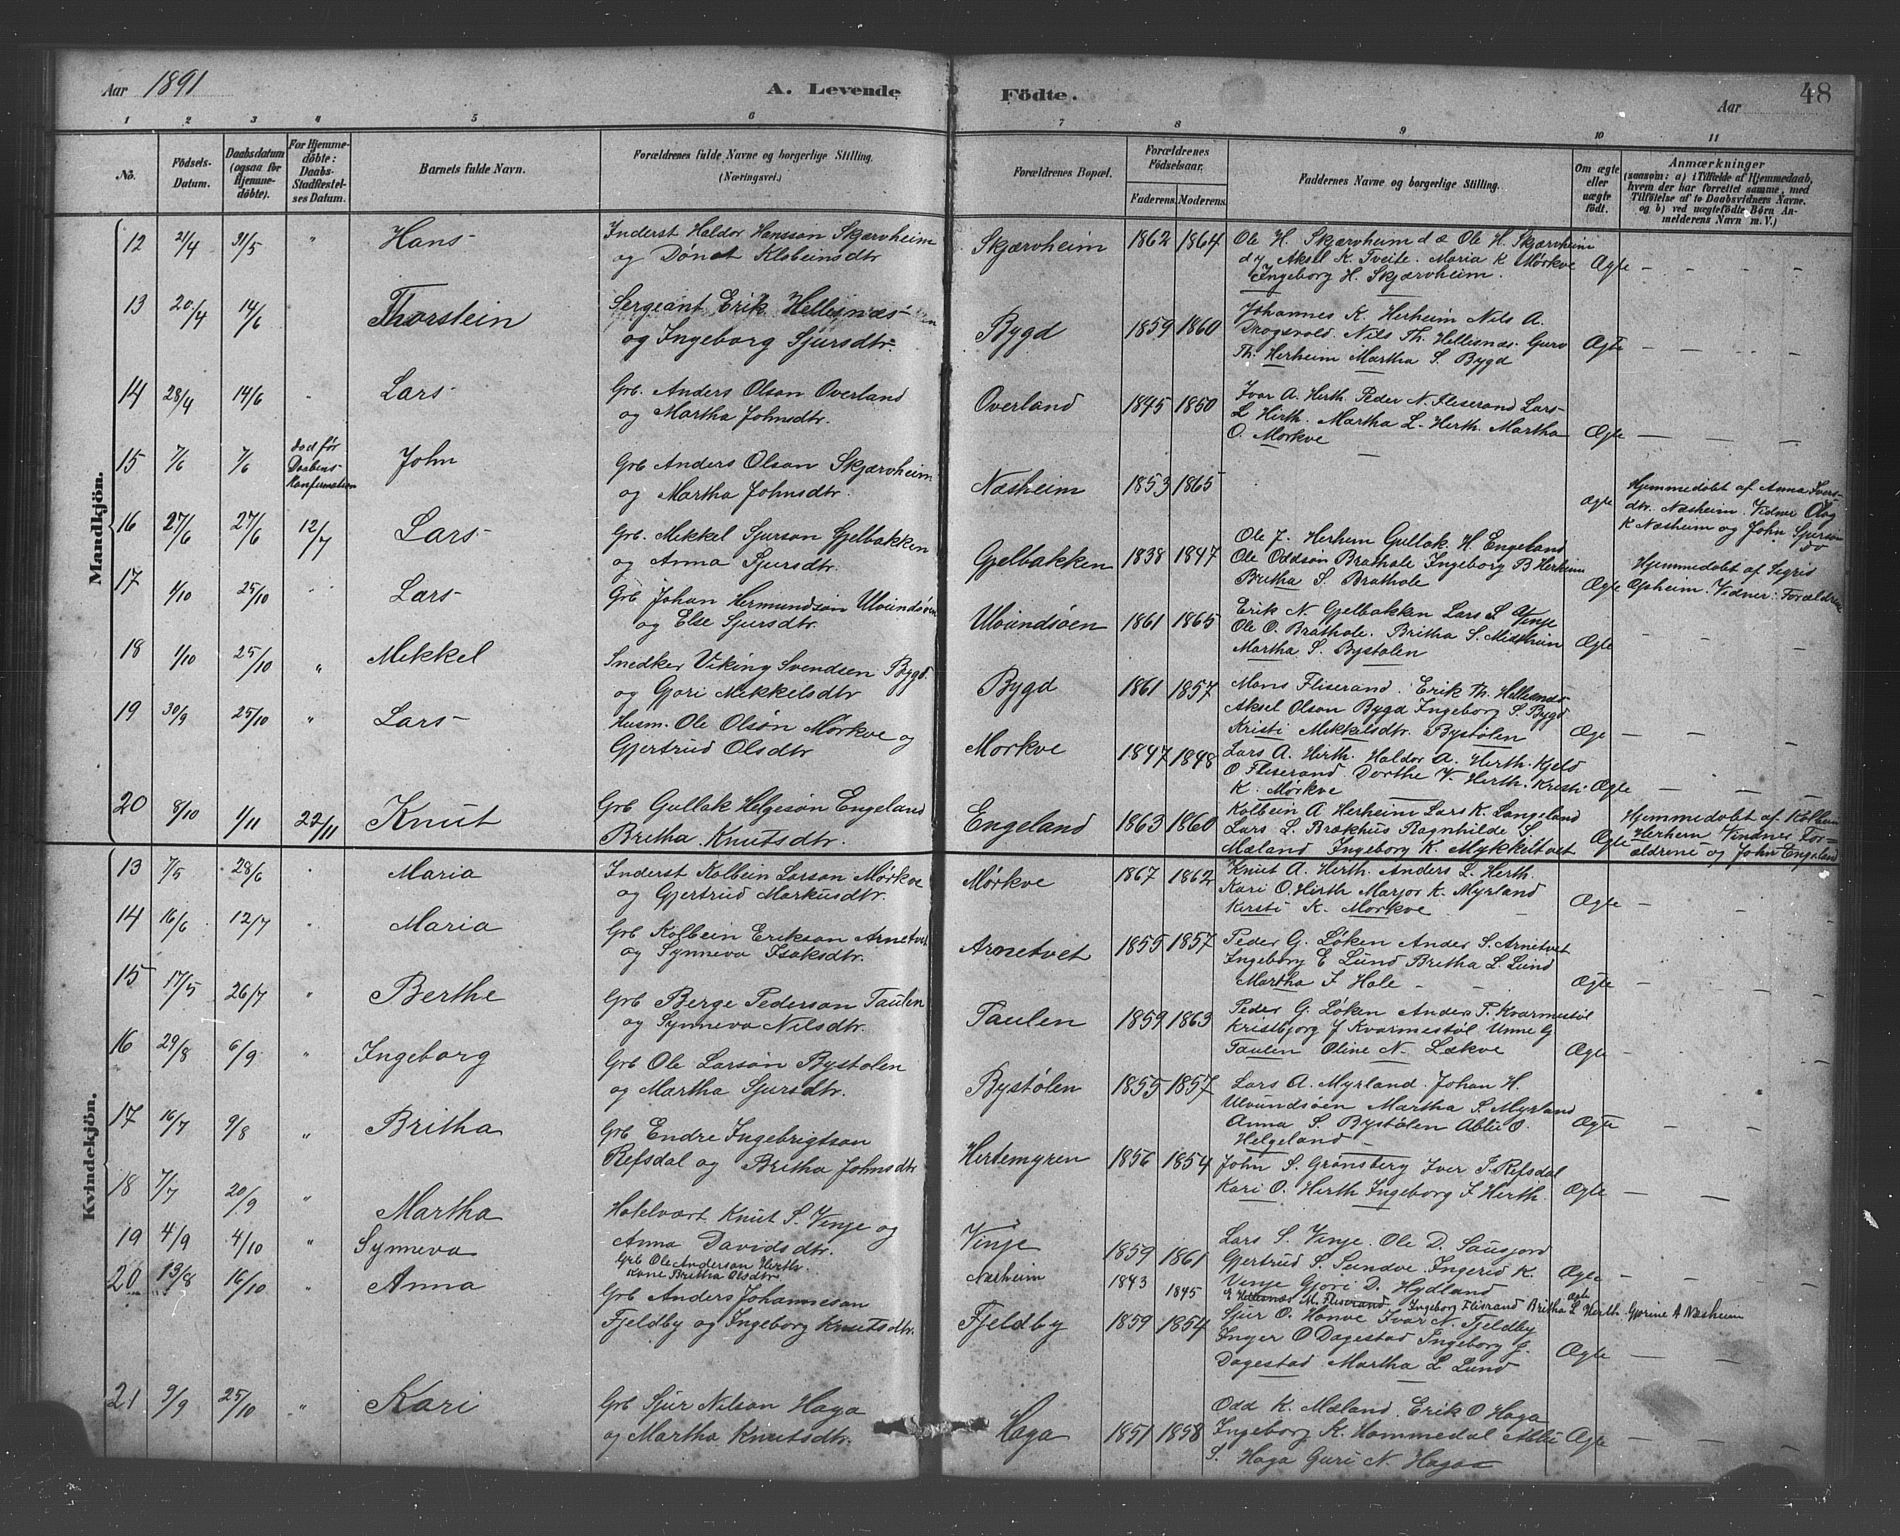 Aar 1891
A. Levende
Födte.
Aar
48
1 2 3 4 5 6 7 8 9 10 11
No.
Födsels-Datum.
Daabsdatum (ogsaa for Hjemmedöbte).
For Hjemmedöbte: Daabs-Stadfæstelses Datum.
Barnets fulde Navn.
Forældrenes fulde Navne og borgerlige Stilling. (Næringsvei.)
Forældrenes Bopæl.
Forældrenes Födselsaar.
Faderens. Moderens.
Faddernes Navne og borgerlige Stilling.
Om ægte eller uægte födt.
Anmærkninger
(saasom: a) i Tilfælde af Hjemmedaab, hvem der har forrettet samme, med Tilföielse af to Daabsvidners Navne. og b) ved uægtefödte Børn Anmelderens Navn m. V.)
Mandkjön.
12 21/4 31/5 " Hans Inderst Haldor Hansson Skjærvheim
og Dönot Klobeinsdtr
Skjærvheim 1862 1864 Ole H. Skjærvheim d æ Ole H. Skjærvheim
d y Aksel K. Tveite. Maria K Mørkve
Ingeborg H. Skjærvheim. Ægte
13 20/4 14/6 Thorstein Sergeant Erik Hellesnæs
og Ingeborg Sjursdtr.
Bygd 1859 1860 Johannes K. Herheim Nils A.
Drogsvold. Nils Th. Hellesnæs. Guro
Th. Herheim Martha S. Bygd Ægte
14 28/4 14/6 " Lars Grb. Anders Olson Overland
og Martha Johnsdtr.
Overland 1845 1850 Ivar A. Herth. Peder N. Fliserand Lars
L Hirth. Martha L. Herth. Martha
O. Mørkve Ægte
15 7/6 7/6 død før Daabens Konfirmation John Grb Anders Olson Skjærvheim
og Martha Johnsdtr.
Næsheim 1853 1865 Ægte Hjemmedøbt af Anna Ivers-
dtr. Næsheim. Vidner Olav
K Næsheim og John Sjurson
do
16 27/6 27/6 12/7 Lars Grb. Mikkel Sjurson Gjelbakken
og Anna Sjursdtr.
Gjelbakken 1838 1847 Ole J. Herhem Gullak. H. Engeland
Ole Oddson Brathole Ingeborg B Herheim
Britha S. Brathole Ægte Hjemmedøbt af Sigrid
Opheim. Vidner: Forældrene
17 4/10 25/10 " Lars Grb Johan Hermundson Ulvundsøen
og Elie Sjursdtr.
Ulvundsøen 1861 1865 Erik N. Gjelbakken Lars S. Vinje
Ole O. Brathole. Britha S. Misthein
Martha S. Bystolen Ægte
18 1/10 25/10 " Mikkel Snedker Viking Svendsen Bygd
og Gjori Mikkelsdtr
Bygd 1861 1857 Mons Fliserand. Erik Th. Hellesnæs
Aksel Olson Bygd Ingeborg S. Bygd
Kristi Mikkelsdtr. Bystølen Æge
19 30/9 25/10 " Lars Husm. Ole Olsøn Mørkve og
Gjertrud Olsdtr
Morkve 1847 1848 Lars A. Hirth. Haldor A. Herth. Kjeld
O Fliserand Dorthe V. Herth. Kristi
K. Mørkve Ægte
20 8/10 1/11 22/11 Knut Grb Gullak Helgeson Engeland
Britha Knutsdtr.
Engeland 1863 1860 Kolbein A Herheim Lars K. Langeland
Lars L. Brækhus Ragnhilde S.
Mæland Ingeborg K. Mykkeltvet Ægte Hjemmedøbt af Kolbein
Herhem Vindnes For-
ældrene og John Engeland
Kvindekjön.
13 7/5 28/6 Maria Inderst Kolbein Larson Mørkve
og Gjertrud Markusdtr.
Mørkve 1867 1862 Knut A. Herth. Anders L. Herth.
Kari O. Hirth Marjor K. Myrland
Kersti K. Morkve Ægte
14 16/6 12/7 Maria Grb Kolbein Erikson Arnetvet
og Synneva Isaksdtr.
Arnetvet 1855 1857 Peder G. Løken Ander S. Arnetvet
Ingeborg E Lund Britha L. Lund
Martha I Hole Ægte
15 17/5 26/7 " Berthe Grb Berge Pederson Taulen
og Synneva Nilsdtr.
Taulen 1859 1863 Peder G. Løken Anders P. Kvarmestøl
Kristbjorg J Kvarmestøl Unne G
Taulen Oline N. Lækve Ægte
16 29/8 6/9 " Ingeborg Grb Ole Larson Bystølen
og Martha Sjursdtr.
Bystølen 1855 1857 Lars A. Myrland. Johan H.
Ulvundsøen Martha S. Myrland
Anna S. Bystølen Ablie O.
Helgeland Ægte
17 16/7 9/8 " Britha Grb Endre Ingebrigtson
Refsdal og Britha Johnsdtr
Hertemyren 1856 1854 John S. Grønsberg Iver I. Refsdal
Kari O. Herth Ingeborg I Herth. Ægte
18 7/7 20/9 " Martha Hotelvært Knut S. Vinje og
Anna Davidsdtr.
Vinje 1859 1861 Lars S. Vinje. Ole D. Sausjord
Gjertrud S. Sundve. Ingerid K.
Vinje Gjori D. Hydland Ægte
19 4/9 4/10 " Synneva Grb Ole Anderson Herth
Kone Britha Olsdtr.
Næsheim 1843 1845 M. Fliserand Ingeborg Flisrand Britha L Herth. Gjorine A Næsheim ægte
20 13/8 16/10 " Anna Grb Anders Johanneson
Fjeldby og Ingeborg Knutsdtr.
Fjeldby 1859 1854 Sjur O. Honve Ivar N. Fjeldby
Inger O Dagestad Ingeborg G.
Dagestad Martha L. Lund Ægte
21 9/9 25/10 " Kari Grb Sjur Nilson Haga
og Martha Knutsdtr.
Haga 1851 1858 Odd K. Mæland. Erik O Haga
Ingeborg K. Hommedal Ablie
S. Haga Guri N. Haga Ægte